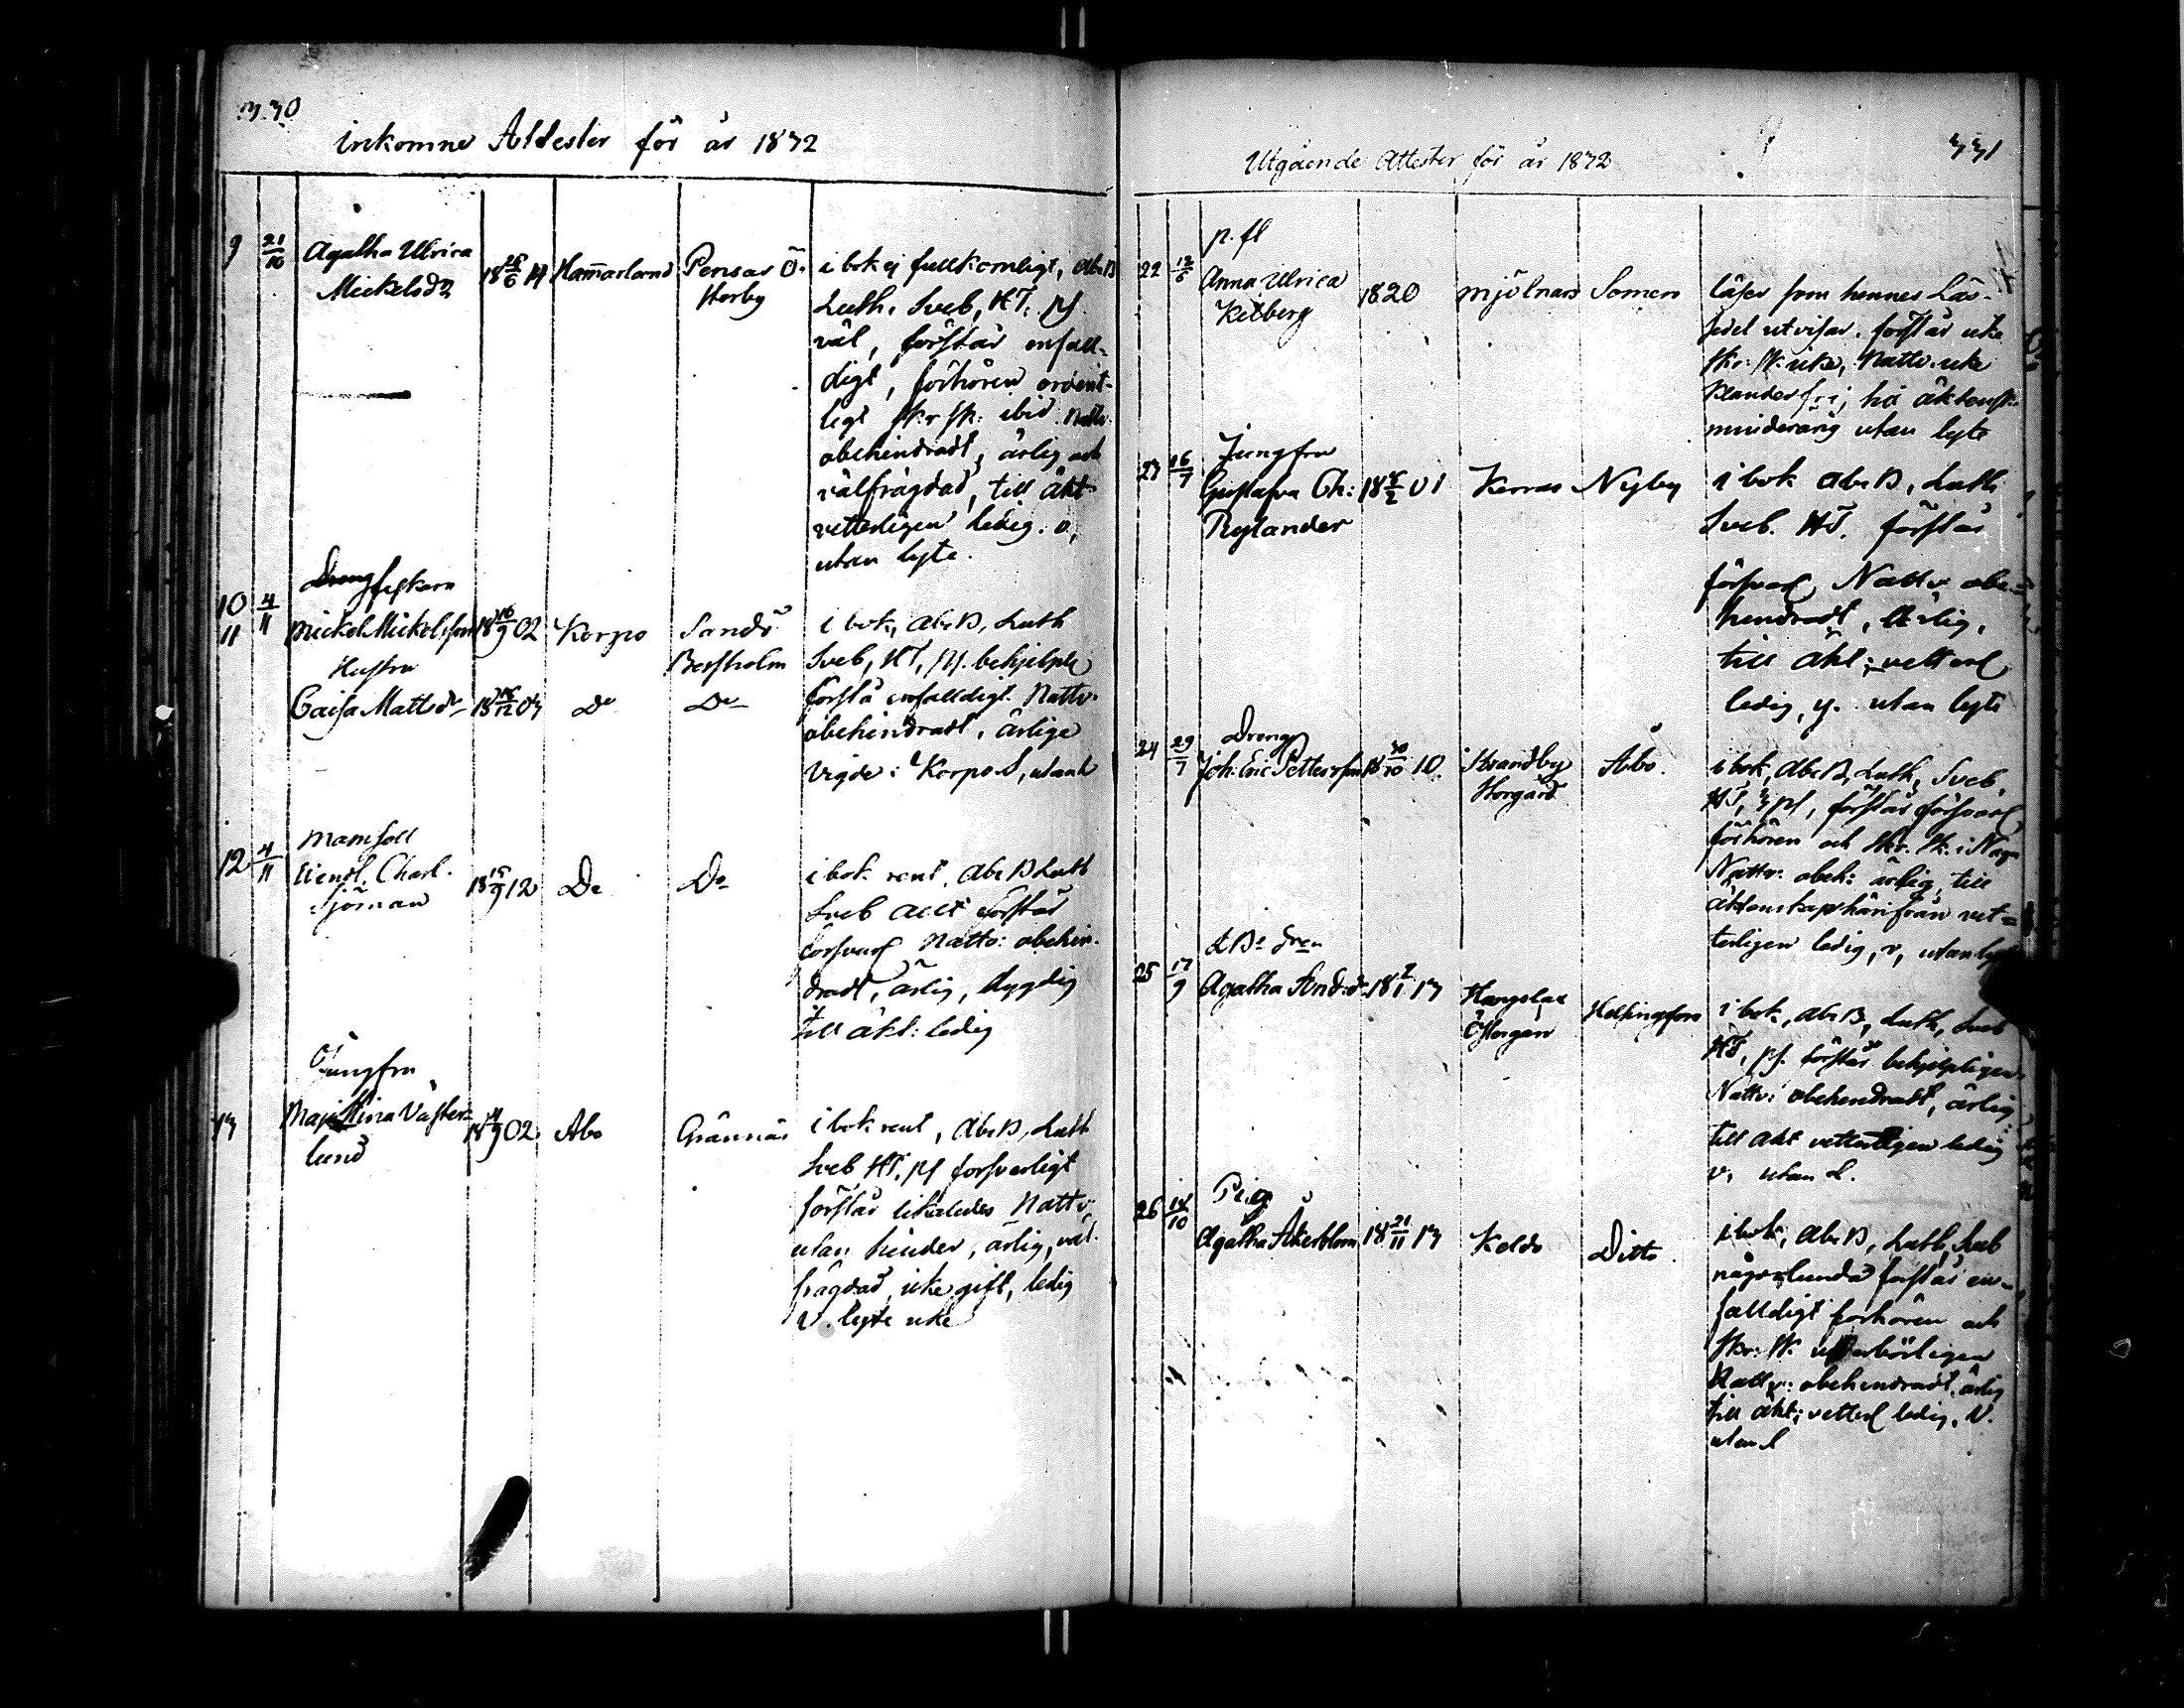 330
Inkomne Attester för år 1832
9 21/10 Agatha Ulrica
Mickelsdr
18 25/6 14 Hammarland Pensar Ö.
Storby
i bok ej fullkomligt, Abc B
Luth. Sveb, HT. ps.
väl, förstår enfall-
digt, förhören ordent-
ligt skr. sk: ibid. Nattv.
obehindradt, ärlig och
välfrägdad, till äkt
vetterligen ledig. v,
utan lyte.
fiskaren
10 4/11
11 Mickel Mickelsson 18 16/9 02 Korpo Sandö
Bersholm
Hustru
Caisa Mattsdr 18 16/12 03 Do Do
i bok, Abc B, Luth
Sveb, HT, ps. behjelpl
förstå enfalldigt. Nattv.
obehindradt, ärlige
vigde i Korpo. S, utan l
Mamsell
12 4/11 Charl.
Sjöman
18 15/9 12 Do Do
i bok rent, Abc B Luth
Sveb allt förstår
försvarl Nattv: obehin-
dradt, ärlig, dygdig
till äkt: ledig
Jungfru
13 Maja Stina Väster-
lund
18 4/9 02 Åbo Grännäs
i bok rent, Abc B, Luth
Sveb HT, ps försvarligt
förstår likaledes Nattv.
utan hinder, ärlig, väl-
frägdad, icke gift, ledig
v. lyte icke
331
Utgående Attester för år 1832
p. fl
22 12/6 Anna Ulrica
Kilberg
1820 Mjölnars Somero
läser som hennes Läs-
sedel utvisar. förstår icke
skr: sk: icke, Nattv. icke
klanderfri, hd äktensk:
minderårig utan lyte
Jungfru
23 16/7 Gustafva Ch:
Rylander
18 8/2 01 Kerras Nyby
i bok Abc B, Luth
Sveb. HT. förstår
försvarl Nattv obe-
hindradt, ärlig,
till äkt: vetterl
ledig, y. utan lyte
Dreng
24 29/7 Joh: Eric Pettersson 18 30/10 10 Strandby
Storgård
Åbo.
i bok, Abc B, Luth, Sveb,
HT, 3 ps, förstår försvarl,
förhören och skr. sk: i Nag
Nattv: obeh: ärlig, till
äktenskap härifrån vet-
terligen ledig, v, utan lyt
25 17/9 Agatha And:dr 18 2/1 13 Hangslax
Östergård
Helsingfors
i bok, Abc B, Luth, Sveb
HT, ps. förstår behjelpligen,
Nattv: obehindradt, ärlig
till äkt vetterligen ledig
v, utan L.
Pig
26 14/10 Agatha Åkerblom 18 21/11 13 Koldo Ditto.
i bok, Abc B, Luth, Sveb
någorlunda förstår en-
falldigt förhören och
skr: sk.
Nattv: obehindradt. ärlig
till äkt: vetterl ledig, v.
utan l